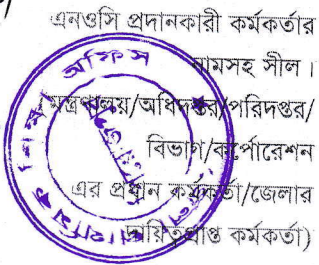 এনওসি প্রদানকারী কর্মকর্তার
নামসহ সীল।
মন্ত্রণালয়/অধিদপ্তর/পরিদপ্তর/
বিভাগ/কর্পোরেশন
এর প্রধান কর্মকর্তা/জেলার
দায়িত্বপ্রাপ্ত কর্মকর্তা)
শিক্ষা অফিস